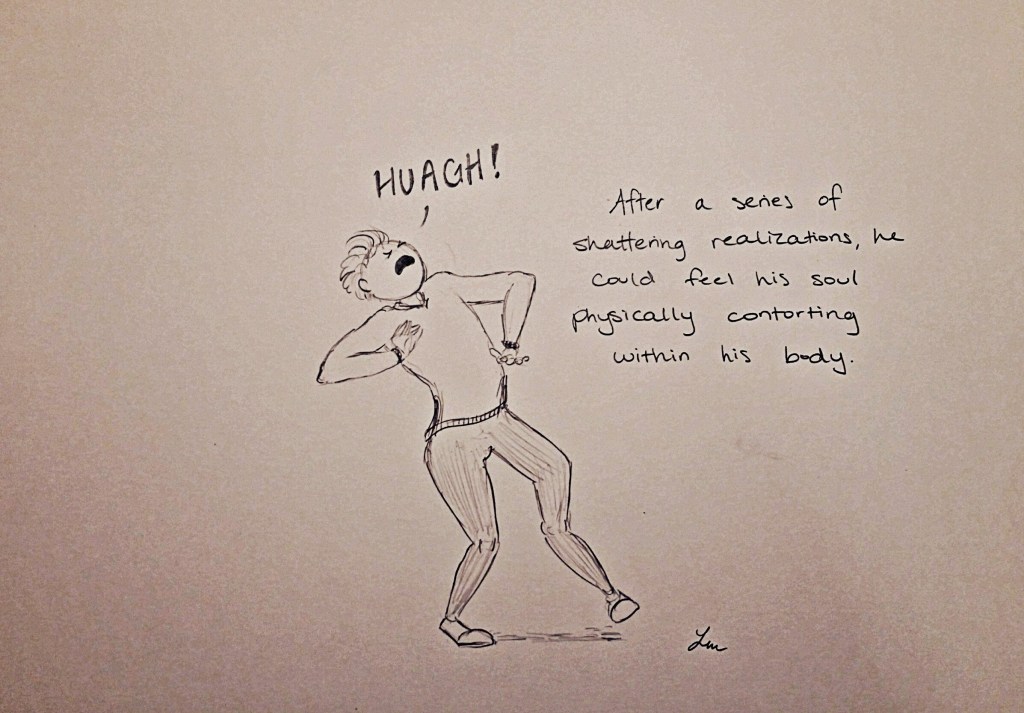 HUAGH!
After a series of
shattering realizations, he
could feel his soul
physically contorting
within his body.